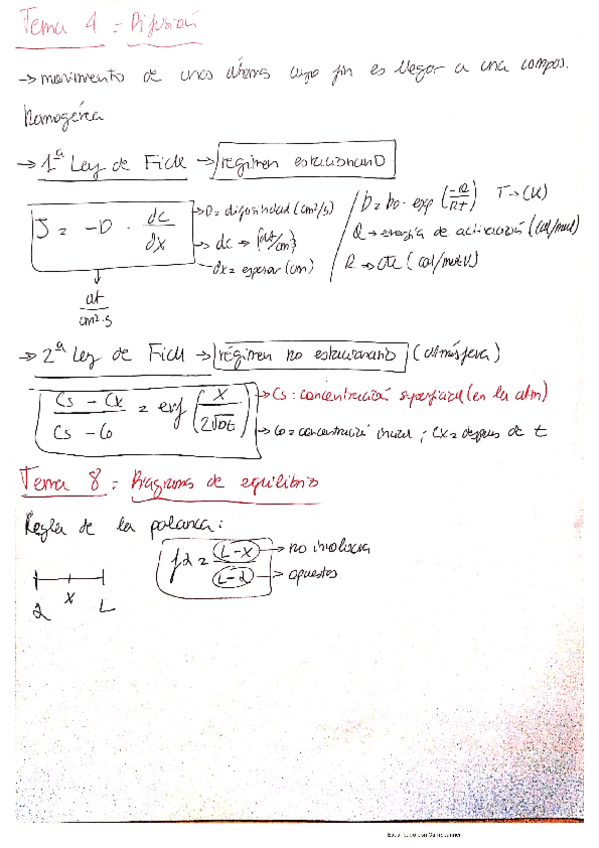 Tema 4 = Difusión
-> movimiento de unos átomos cuyo fin es llegar a una compos.
homogénea
-> 1ª Ley de Fick -> régimen estacionario
J = -D · dc/dx
-> D = difusividad (cm²/s)
-> dc -> {at/cm³}
dx = espesor (cm)
at/cm²·s
D = Do · exp (-Q/RT) T -> (K)
Q -> energía de activación (cal/mol)
R -> cte (cal/mol·K)
-> 2ª Ley de Fick -> régimen no estacionario (atmósfera)
Cs - Cx / Cs - Co = erf (x / 2√Dt)
-> Cs: concentración superficial (en la atm)
-> Co = concentración inicial ; Cx = después de t
Tema 8 = Diagramas de equilibrio
Regla de la palanca:
fα = L-x / L-α
-> no involucra
-> opuestos
α x L